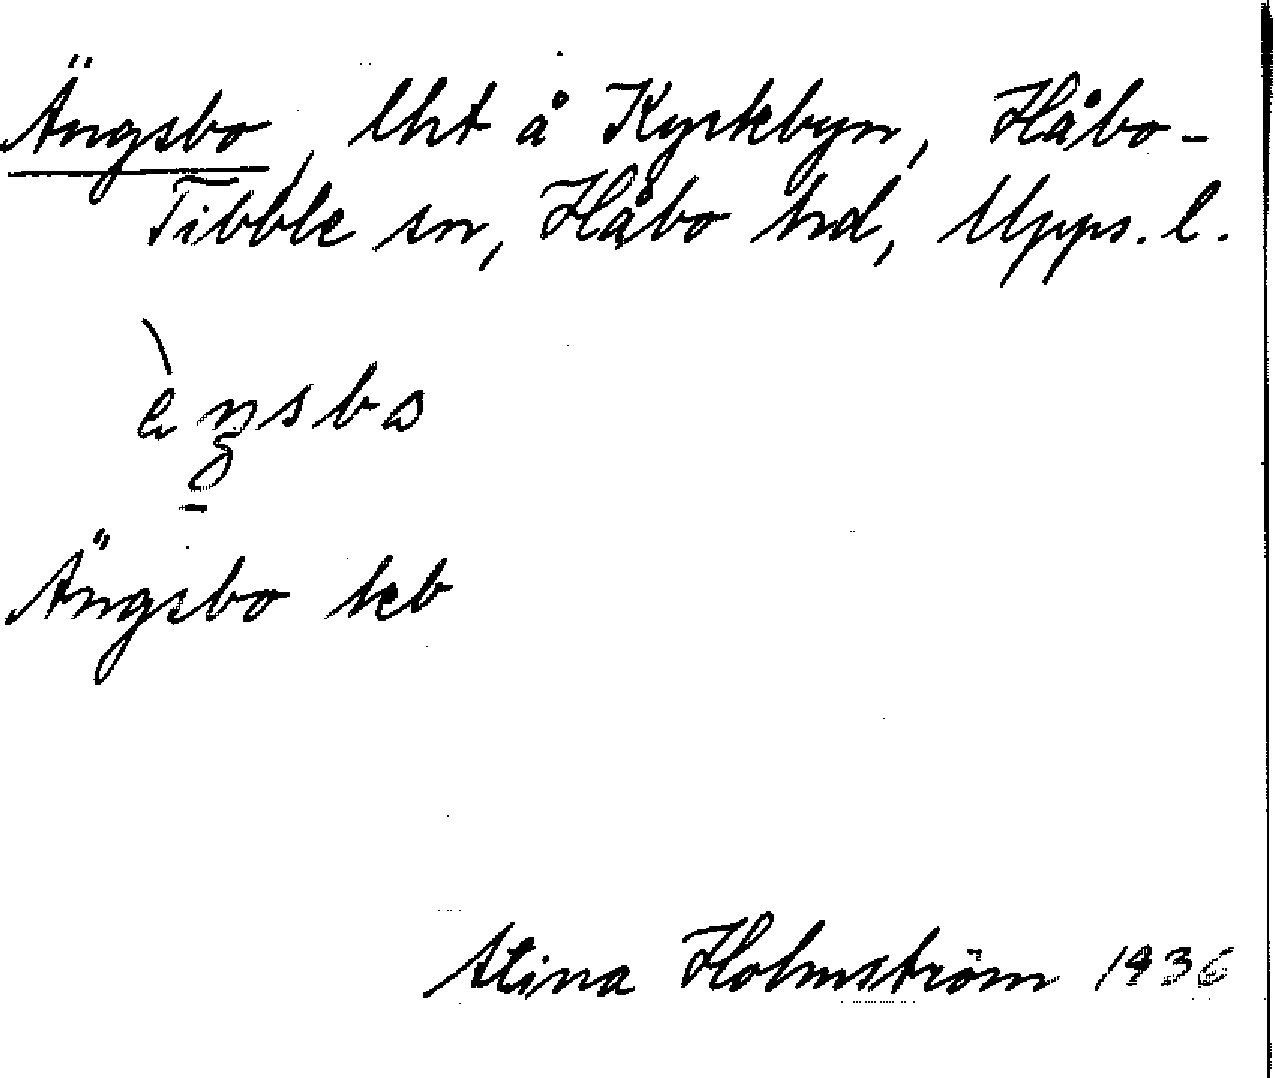 Ängsbo, lht å Kyrkbyn, Håbo-
Tibble sn, Håbo hd, Upps. l.
Ängsbo kb
Stina Holmström 1936